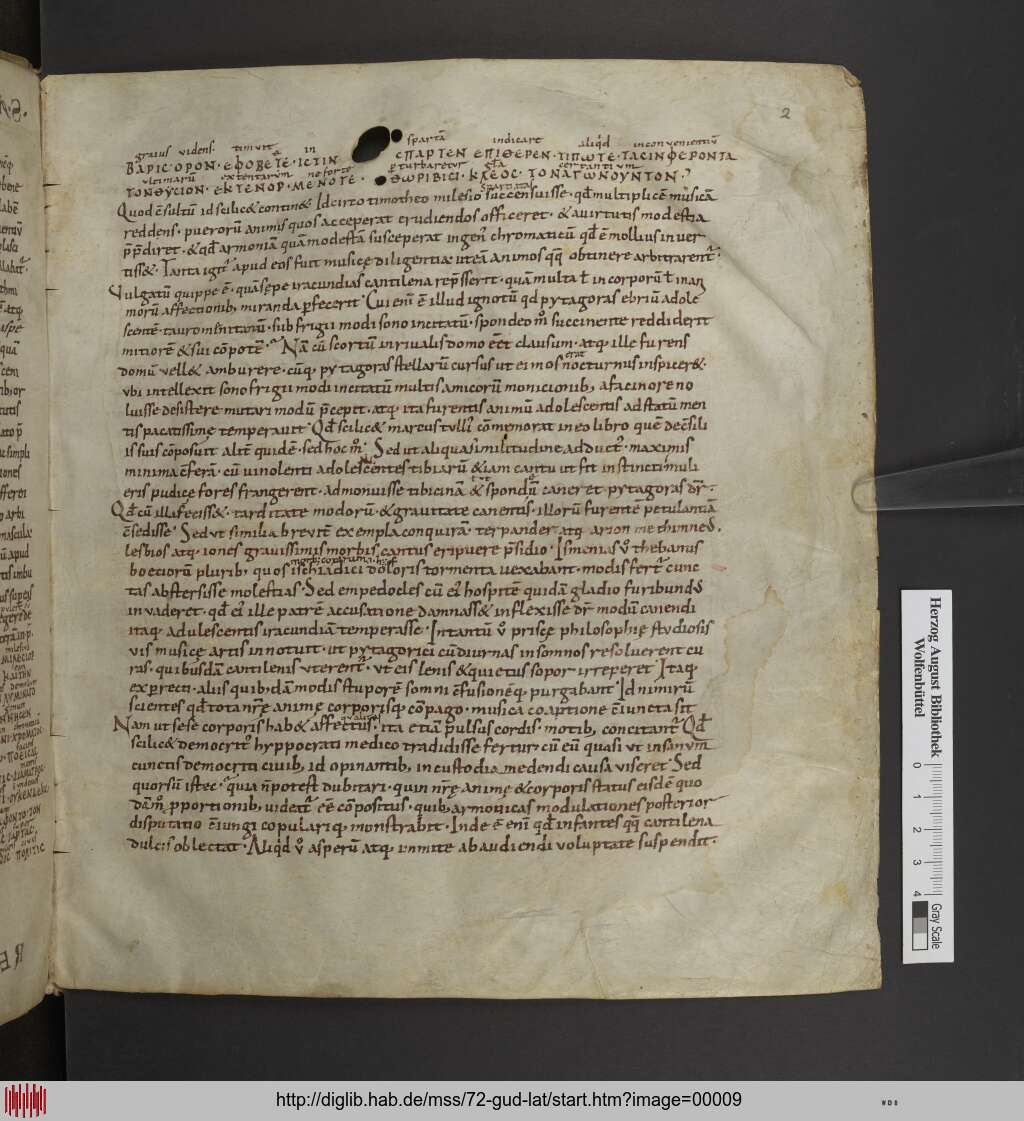 2
grauis uidens. timuit in spartā indicare aliqd inconuenientiū
ΒΑΡΙC·ΟΡΟΝ·ΕΦΟΒΕΤΕ·ΙCΤΙΝ CΠΑΡΤΕΝ ΕΠΙΘΕΡΕΝ·ΤΙΠΩΤΕ·ΤΑCΙΝΦΕΡΟΝΤΑ
extentarum ne forte ꝑturbaretur certantium
ΤΟΝΘΥCΙΟΝ·ΕΚΤΕΝΟΡ·ΜΕΝΟΤΕ· ΘΩΡΙΒΙCΙ·ΚΛΕΟC·ΤΟΝΑΓΩΝΟΥΝΤΟΝ·
Quod ē̄sultū id scilic& contin& Idcirco timotheo milesio succensuisse· qđ multiplicē musicā
reddens· puerorū animis quos acceperat erudiendos officeret· & a uirtutis modestia
p̄p̄diret· & qđ armoniā quā modestā susceperat in geň chromaticū qđ ē mollius in uer
tiss&· Tanta igit̄ apud eos fuit musicę diligentia· ut eā animos qq̨ obtinere arbitrarent̄·
Vulgatū quippe ē· quā sępe iracundias cantilena rep̄sserit· quā multa ł in corporū ł in ani
morū affectionib; miranda ꝑfecerit· Cui eni ē illud ignotū qđ pytagoras ebriū adole
scentē· tauromenitanū· sub frigii modi sono incitatū· spondeo m̊ succinente reddiderit
mitiorē & sui cōpotē· Nā cū scortū in riualis domo eēt clausum· atq; ille furens
erat
domū uell& amburere· cūq; pytagoras stellarū cursus ut ei mos nocturnus inspicer&·
ubi intellexit sono frigii modi incitatū multis amicorū monicionib; a facinore no
luisse desistere· mutari modū p̄cepit· atq; ita furentis animū adolescentis ad statū men
tis pacatissimę temperauit· Qđ scilic& marcus tulli᷒ cōmemorat in eo libro quē de c̄silii
is suis cōposuit alit̄ quidē· sed hoc m̊· Sed ut aliqua similitudine adduct᷒· maximis
minima c̄ferā· cū uinolenti adolescentes tibiarū & iam cantu ut fit instincti muli
eris pudicę fores frangerent· admonuisse tibicinā & spondeū caneret pytagoras dr̄·
Qđ cū illa feciss&· tarditate modorū & grauitate canentis· illorū furentē petulantiā
c̄sedisse· Sed ut similia breuit̄ exempla conquirā· terpander atq; arion methimneꝰ·
lesbios atq; iones grauissimis morbis cantus eripuere p̄sidio· Ismenias ů thebanus
boetiorū plurib; quos ischiadici doloris tormenta uexabant· modis fert̄ cunc
tas abstersisse molestias· Sed empedocles cū ei᷒ hospitē quidā gladio furibundꝰ
inuaderet· qđ ei᷒ ille patrē accusatione damnass& inflexisse dr̄ modū canendi
itaq; adulescentis iracundiā temperasse· Intantū ů priscę philosophię studiosis
uis musicę artis innotuit· ut pytagorici cū diurnas in somnos resoluerent cu
ras· quibusdā cantilenis uterent̄· ut eis lenis & quietus sopor irreperet· Itaq;
exꝑrecti· aliis quib;dā modis stuporē somni c̄fusionēq; purgabant· Id nimirū
scientes qđ tota nr̄ę animę corporisq; cōpago· musica coaptione c̄iuncta sit
Nam ut sese corporis hab& affectus· ita etiā p̄ulsus cordis· motib; concitant̄· Qđ
scilic& democrit᷒ hyppocrati medico tradidisse fertur· cū eū quasi ut insanum
cunctis democriti ciuib; id opinantib; in custodia medendi causa uiseret· Sed
quorsū istec· quia n̄ potest dubitari· quin nr̄ę animę & corporis status eisdē quo
dā m̊ ꝓportionib; uideat̄ eē cōpositus· quib; armonicas modulationes posterior
disputatio c̄iungi copulariq; monstrabit· Inde ē eni qđ infantes qq̨ cantilena
dulcis oblectat· Aliqđ ů asperū atq; inmite ab audiendi uoluptate suspendit·
Herzog August Bibliothek
Wolfenbüttel
0 1 2 3 4
Gray Scale
http://diglib.hab.de/mss/72-gud-lat/start.htm?image=00009